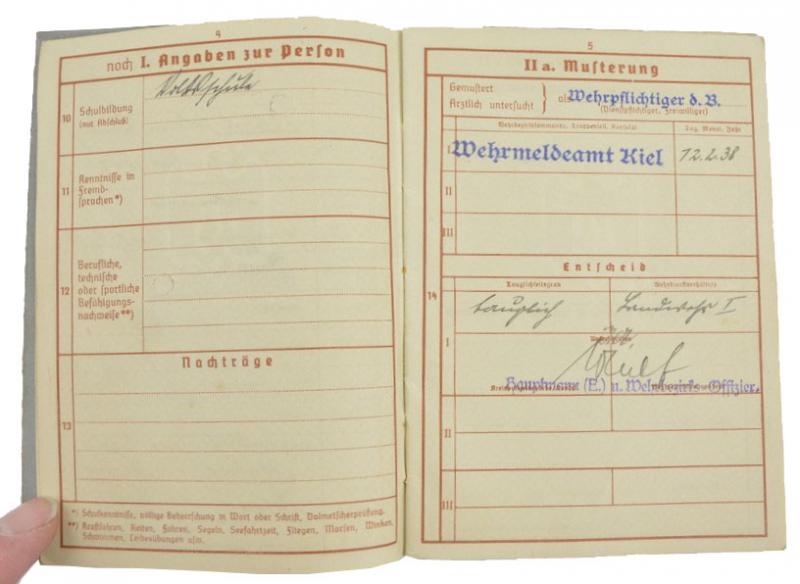 4
noch I. Angaben zur Person
10
Schulbildung
(mit Abschluß)
Volksschule
11
Kenntnisse in
Fremd-
sprachen*)
12
Berufliche,
technische
oder sportliche
Befähigungs-
nachweise**)
Nachträge
13
*) Schulkenntnisse, völlige Beherrschung in Wort oder Schrift, Dolmetscherprüfung.
**) Kraftfahren, Reiten, Fahren, Segeln, Seefahrtzeit, Fliegen, Morsen, Winken,
Schwimmen, Leibesübungen usw.
5
II a. Musterung
Gemustert
Ärztlich untersucht
als
Wehrpflichtiger d. B.
(Dienstpflichtiger, Freiwilliger)
Tag, Monat, Jahr
I
Wehrmeldeamt Kiel
12.2.38
II
III
Entscheid
Tauglichkeitsgrad
Wehrdienstverhältnis
14
tauglich
Landwehr I
I
Hauptmann (E.) u. Wehrbezirks-Offizier.
II
III